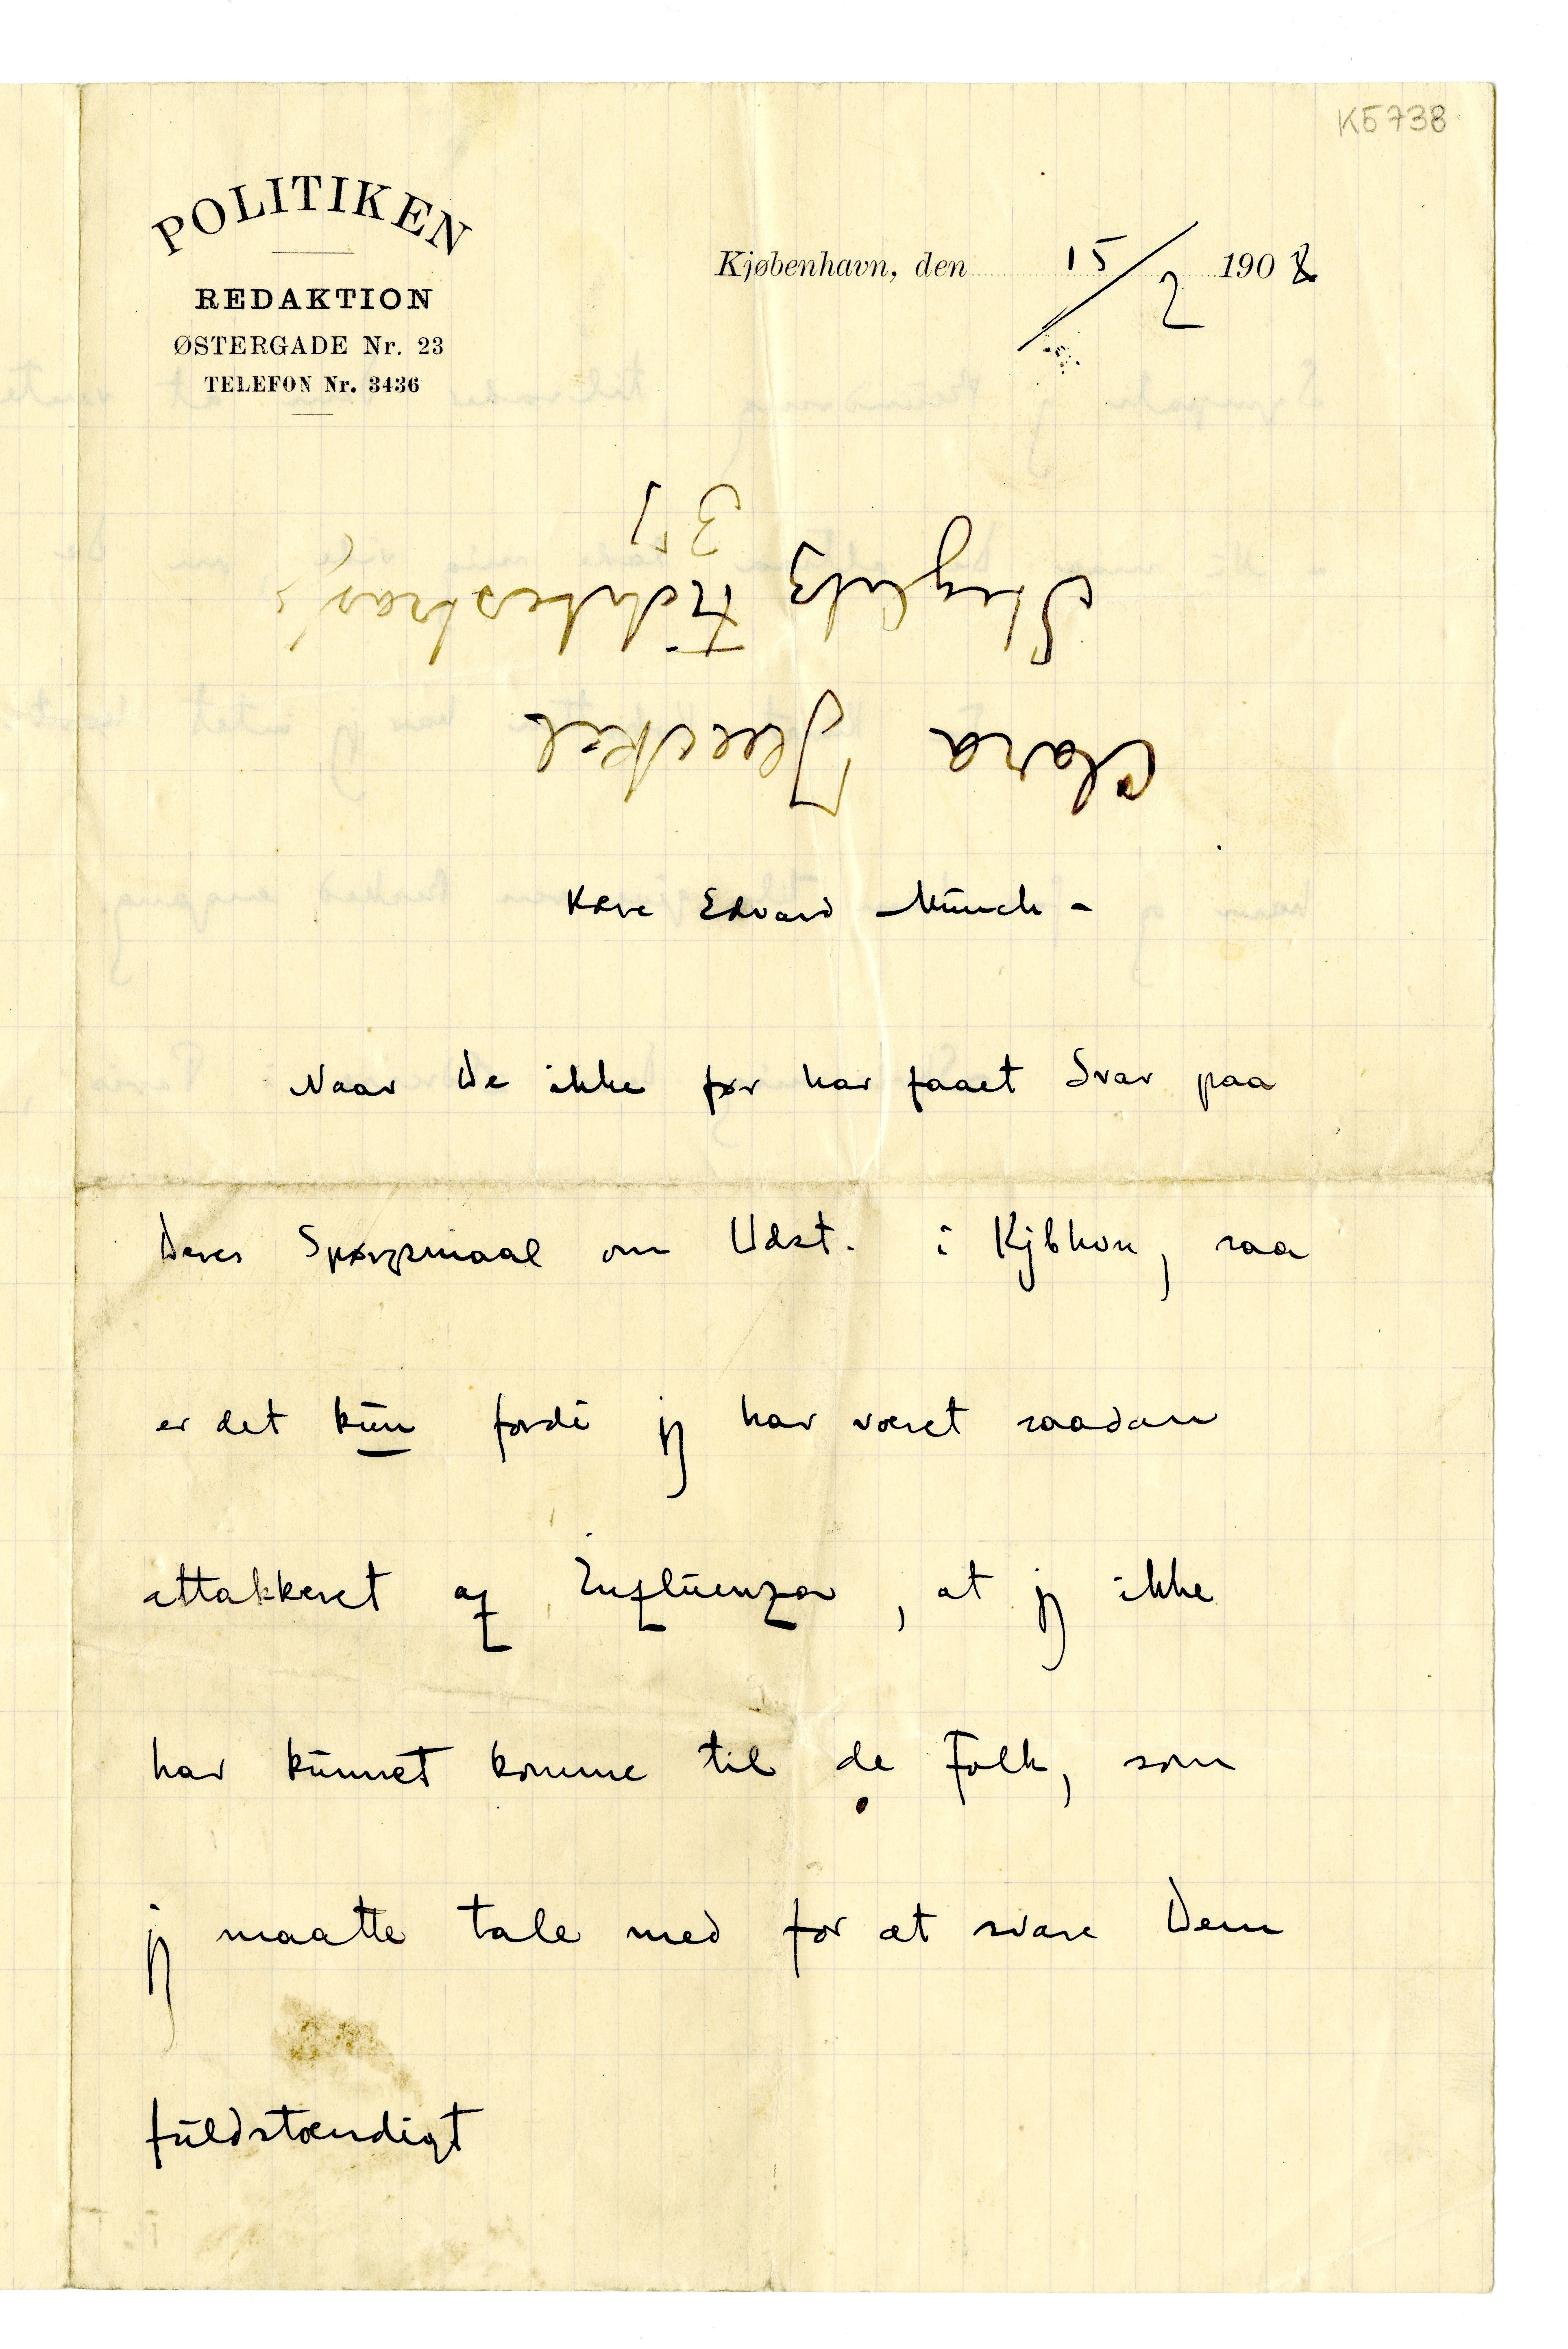 K5738
POLITIKEN
REDAKTION
ØSTERGADE Nr. 23
TELEFON Nr. 3436
Kjøbenhavn, den 15/2 1908
Clara
Steglitz Fichtestras
35
Kære Edvard Münch -
Naar De ikke før har faaet Svar paa
Deres Spørgsmaal om Udst. i Kjbhvn, saa
er det kun fordi jeg har været saadan
attakkeret af Influenza, at jeg ikke
har kunnet komme til de Folk, som
jeg maatte tale med for at svare Dem
fuldstændigt